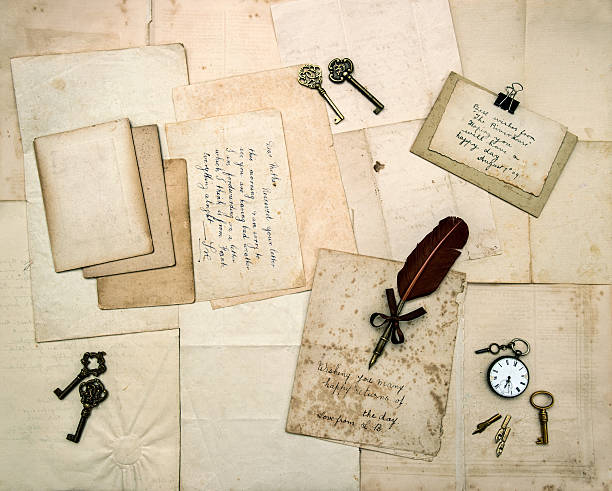 Dear Mother Received your letter
this morning, I am sorry to
see you are having bad weather
I am forwarding on a letter
which I think is from Frank
Everything alright
Best wishes from
The Riverhurst
Hoping you
will have a
happy day
August 9th 09
Wishing you many
happy returns of
the day
Love from L. B.